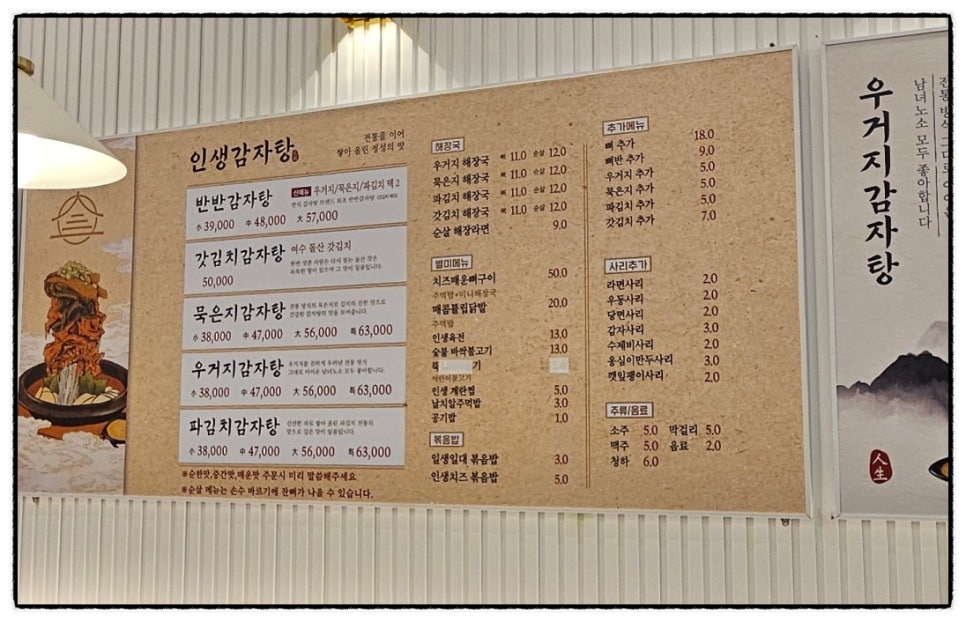 인생감자탕
전통을 이어
쌓아 올린 정성의 맛
반반감자탕 신메뉴 우거지/묵은지/파김치 택2
小 39,000 中 48,000 大 57,000
갓김치감자탕 여수 돌산 갓김치
50,000
묵은지감자탕
小 38,000 中 47,000 大 56,000 특 63,000
우거지감자탕
小 38,000 中 47,000 大 56,000 특 63,000
파김치감자탕
小 38,000 中 47,000 大 56,000 특 63,000
※순한맛,중간맛,매운맛 주문시 미리 말씀해주세요
※순살 메뉴는 손수 바르기에 잔뼈가 나올 수 있습니다.
해장국
우거지 해장국 뼈 11.0 순살 12.0
묵은지 해장국 뼈 11.0 순살 12.0
파김치 해장국 뼈 11.0 순살 12.0
갓김치 해장국 뼈 11.0 순살 12.0
순살 해장라면 9.0
별미메뉴
치즈매운뼈구이 50.0
주먹밥+미니해장국
매콤튤립닭발 20.0
주먹밥
인생육전 13.0
숯불 바싹불고기 13.0
기
어린이불고기
인생 계란찜 5.0
날치알주먹밥 3.0
공기밥 1.0
볶음밥
일생일대 볶음밥 3.0
인생치즈 볶음밥 5.0
추가메뉴
뼈 추가 18.0
뼈반 추가 9.0
우거지 추가 5.0
묵은지 추가 5.0
파김치 추가 5.0
갓김치 추가 7.0
사리추가
라면사리 2.0
우동사리 2.0
당면사리 2.0
감자사리 3.0
수제비사리 2.0
웅심이만두사리 3.0
깻잎팽이사리 2.0
주류/음료
소주 5.0 막걸리 5.0
맥주 5.0 음료 2.0
청하 6.0
우거지감자탕
남녀노소 모두 좋아합니다
人生